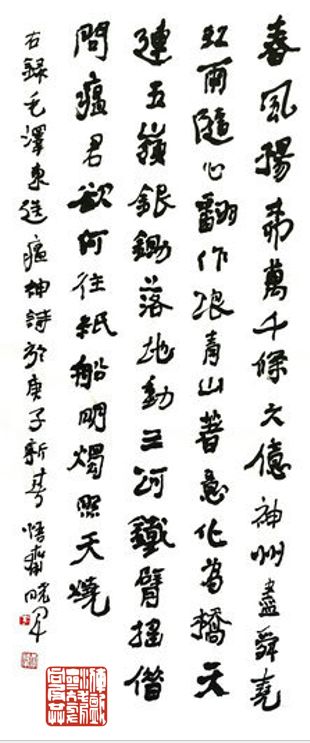 春風楊柳萬千條六億神州盡舜堯
紅雨隨心翻作浪青山著意化為橋天
連五嶺銀鋤落地動三河鐵臂搖借
問瘟君欲何往紙船明燭照天燒
右錄毛澤東送瘟神詩於庚子新春悟齋曉